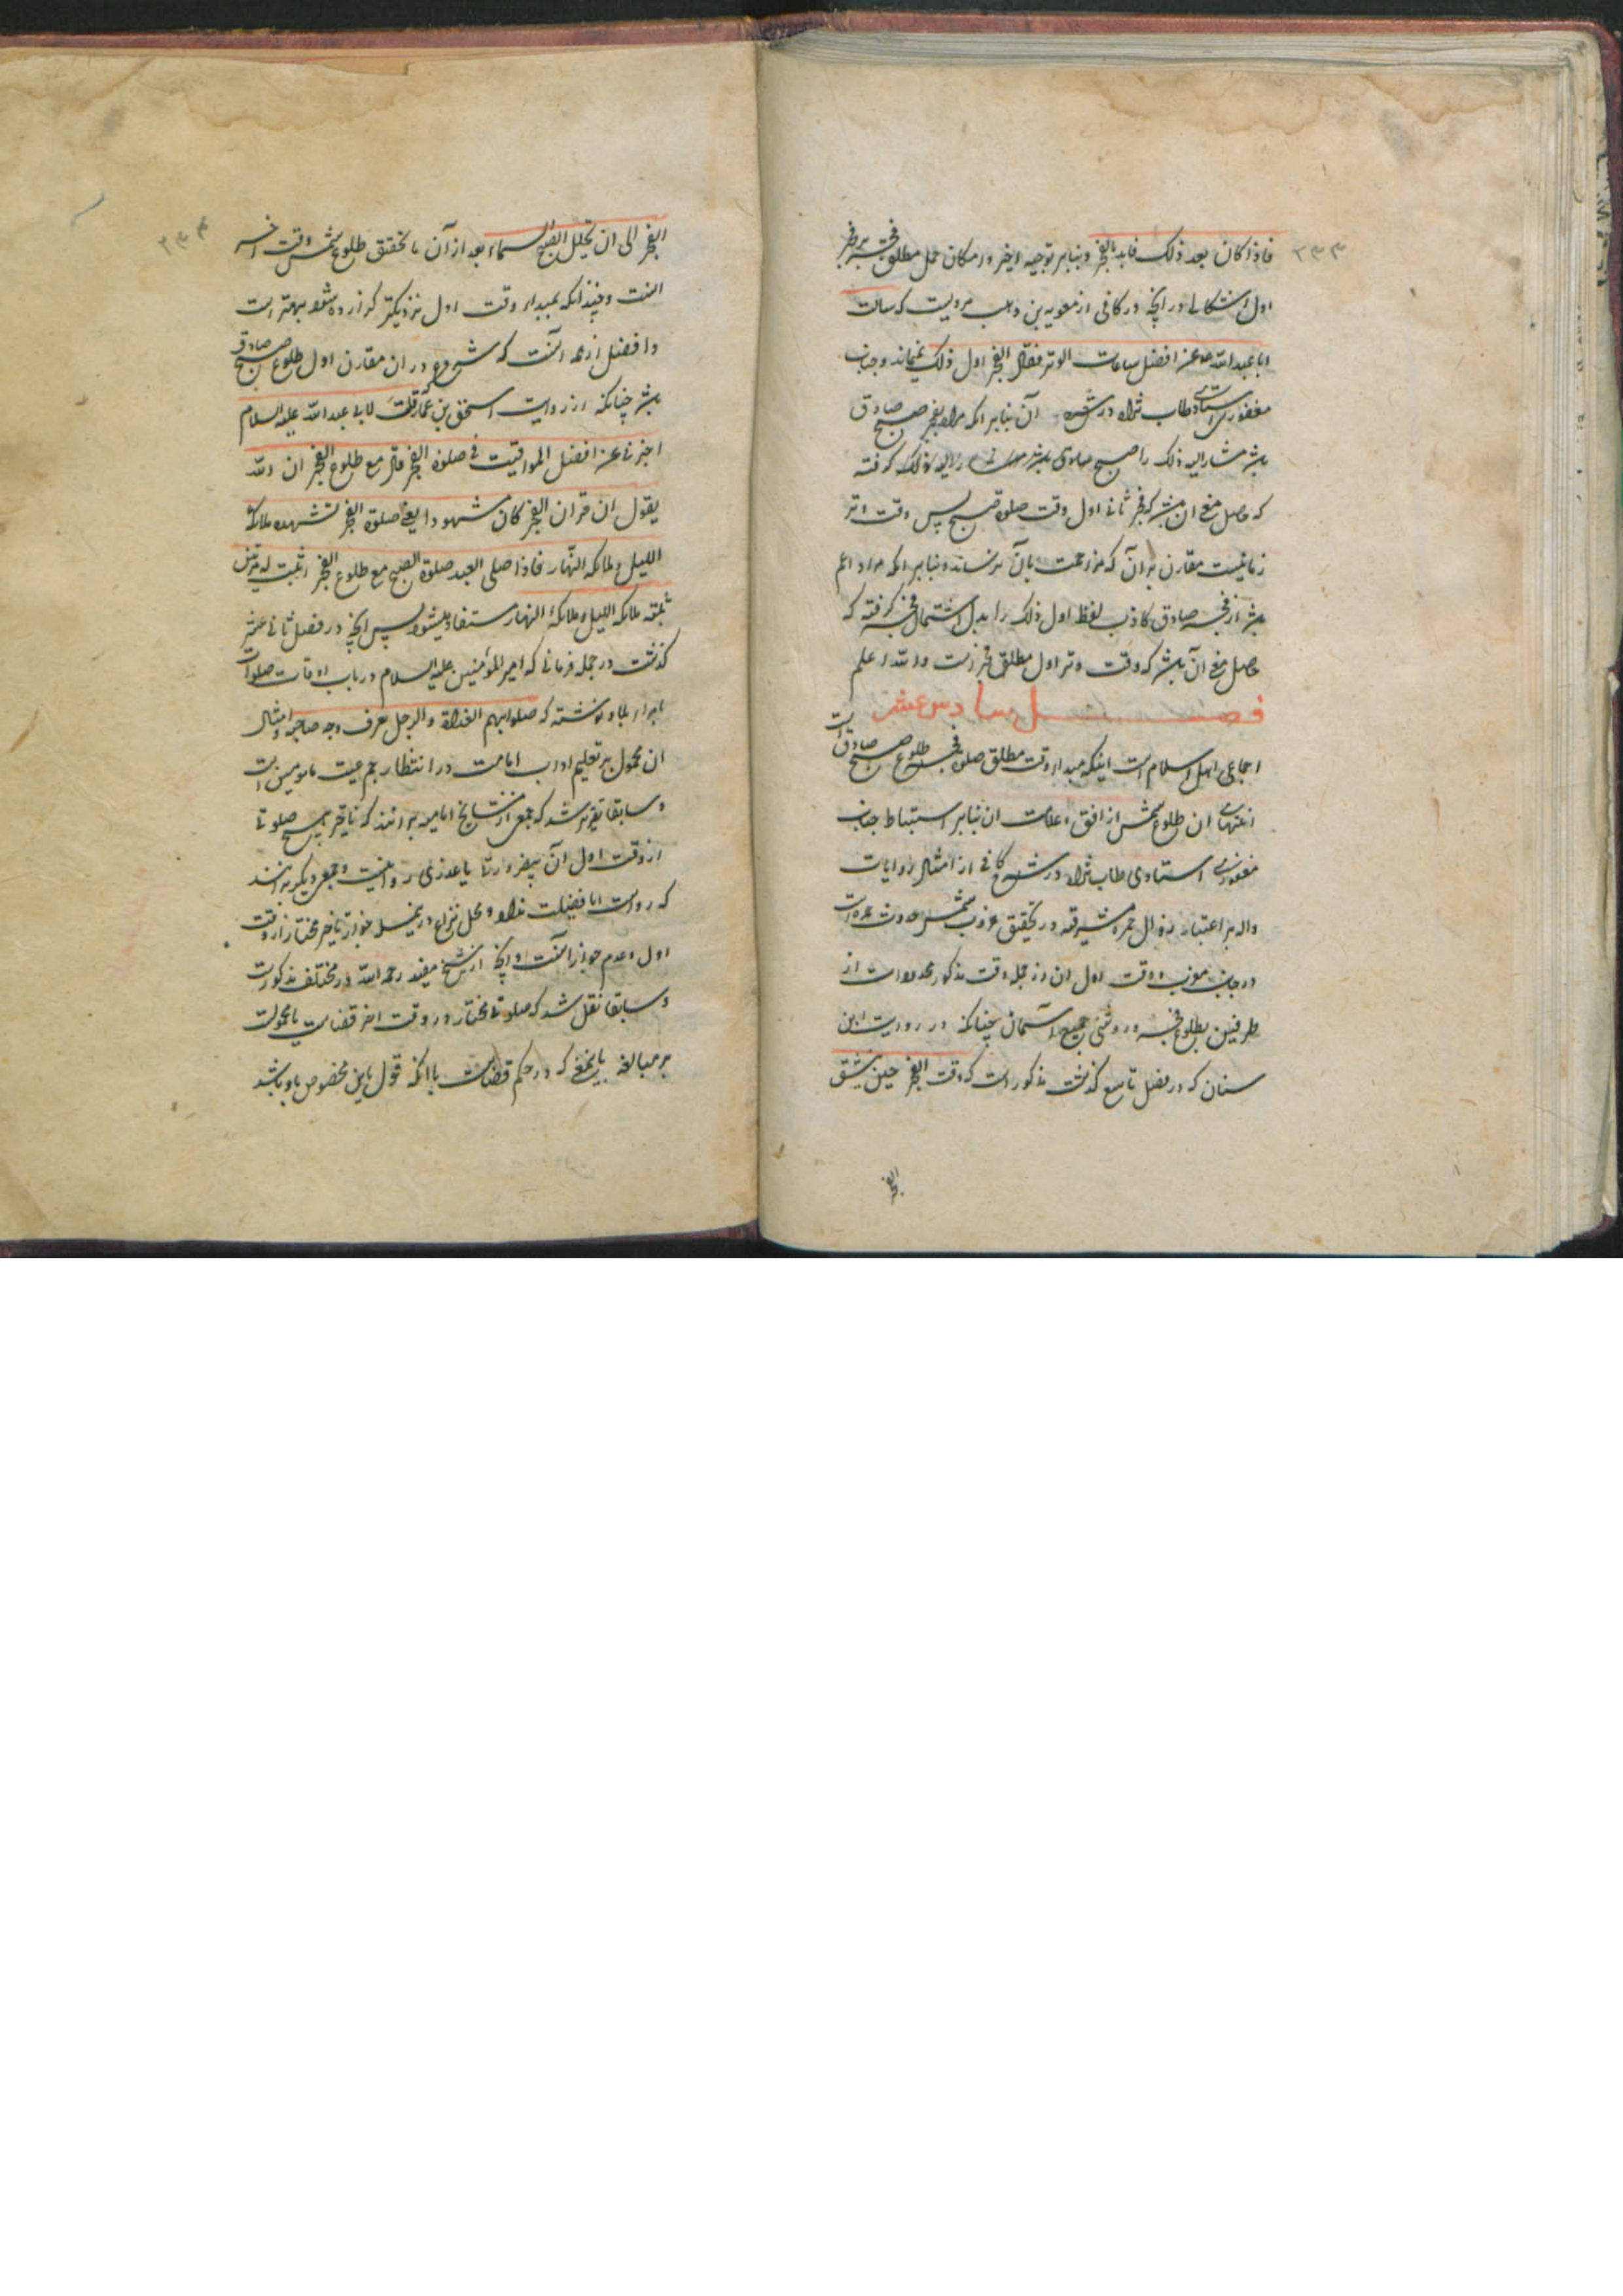 ۲۳۳
فاذا کان بعد ذلک فابدء بالفجر و بنابر توجیه اخیر و امکان حمل مطلق فجر بر فجر
اول اشکالی در آنچه در کافی از معویه بن وهب مرویست که سالت
ابا عبد الله ع عن افضل ساعات الوتر فقال الفجر اول ذلک نمیماند و جناب
مغفوری استادی طاب ثراه در شرح آن بنابر آنکه مراد بفجر صبح صادق
باشد مشار الیه ذلک را صبح صادق
که حاصل معنی آن باشد که فجر ثانی اول وقت صلوة صبح پس وقت وتر
زمانیست مقارن بر آن که مزاحمت بآن نرساند و بنابر آنکه مراد اعم
باشد از فجر صادق و کاذب لفظ اول ذلک را بدل اشتمال فجر گرفته که
حاصل معنی آن باشد که وقت وتر اول مطلق فجر است والله اعلم
فصل سادس عشر
اجماعی اهل اسلام است اینکه مبداء وقت مطلق صلوة فجر طلوع صبح صادق است
و انتهای آن طلوع شمس از افق و علامت آن بنابر استنباط جناب
مغفوری استادی طاب ثراه در شرح کافی از امثال روایات
داله بر اعتبار زوال حمره مشرقیه در تحقیق غروب شمس حدوث حمره است
در جانب مغرب و وقت اول آن از جمله وقت مذکور محدود است از
طرفین بطلوع فجر و روشنی جمیع آسمان چنانکه در روایت ابن
سنان که در فصل تاسع گذشت مذکور است که وقت الفجر حین ینشق
الفجر
۲۳۴
الفجر الی ان تجلل الصبح السماء بعد از آن تا تحقق طلوع شمس وقت آخر
آنست و چندانکه بمبداء وقت اول نزدیکتر گزارده شود بهتر است
و افضل از همه آنست که شروع در آن مقارن اول طلوع صبح صادق
باشد چنانکه از روایت اسحق بن عمار قلت لابی عبد الله علیه السلام
اخبرنی عن افضل المواقیت فی صلوة الفجر قال مع طلوع الفجر ان الله
یقول ان قران الفجر کان مشهودا یعنی صلوة الفجر تشهده ملائکة
اللیل و ملائکة النهار فاذا صلی العبد صلوة الصبح مع طلوع الفجر اثبت له مرتین
تثبته ملائکة اللیل و ملائکة النهار مستفاد میشود پس آنچه در فصل ثانی عشر
گذشت در جمله فرمانی که امیر المومنین علیه السلام در باب اوقات صلوات
بامراء بلاد نوشته که صلوا بهم الغداة و الرجل یعرف وجه صاحبه و امثال
آن محمول بر تعلیم آداب امامت در انتظار جمعیت مامومین است
و سابقا تقریر شد که جمعی از مشایخ امامیه برآنند که تاخیر هیچ صلوتی
از وقت اول آن بیضرورت یا عذری روا نیست و جمعی دیگر برآنند
که رواست اما فضیلت ندارد و محل نزاع در جواز تاخیر مختار از وقت
اول و عدم جواز آنست و آنچه از شیخ مفید رحمه الله در مختلف مذکور است
و سابقا نقل شد که صلوتی مختار در وقت آخر قضاست یا محمول است
بر مبالغه باینمعنی که در حکم قضاست یا آنکه قول باین مخصوص باو باشد